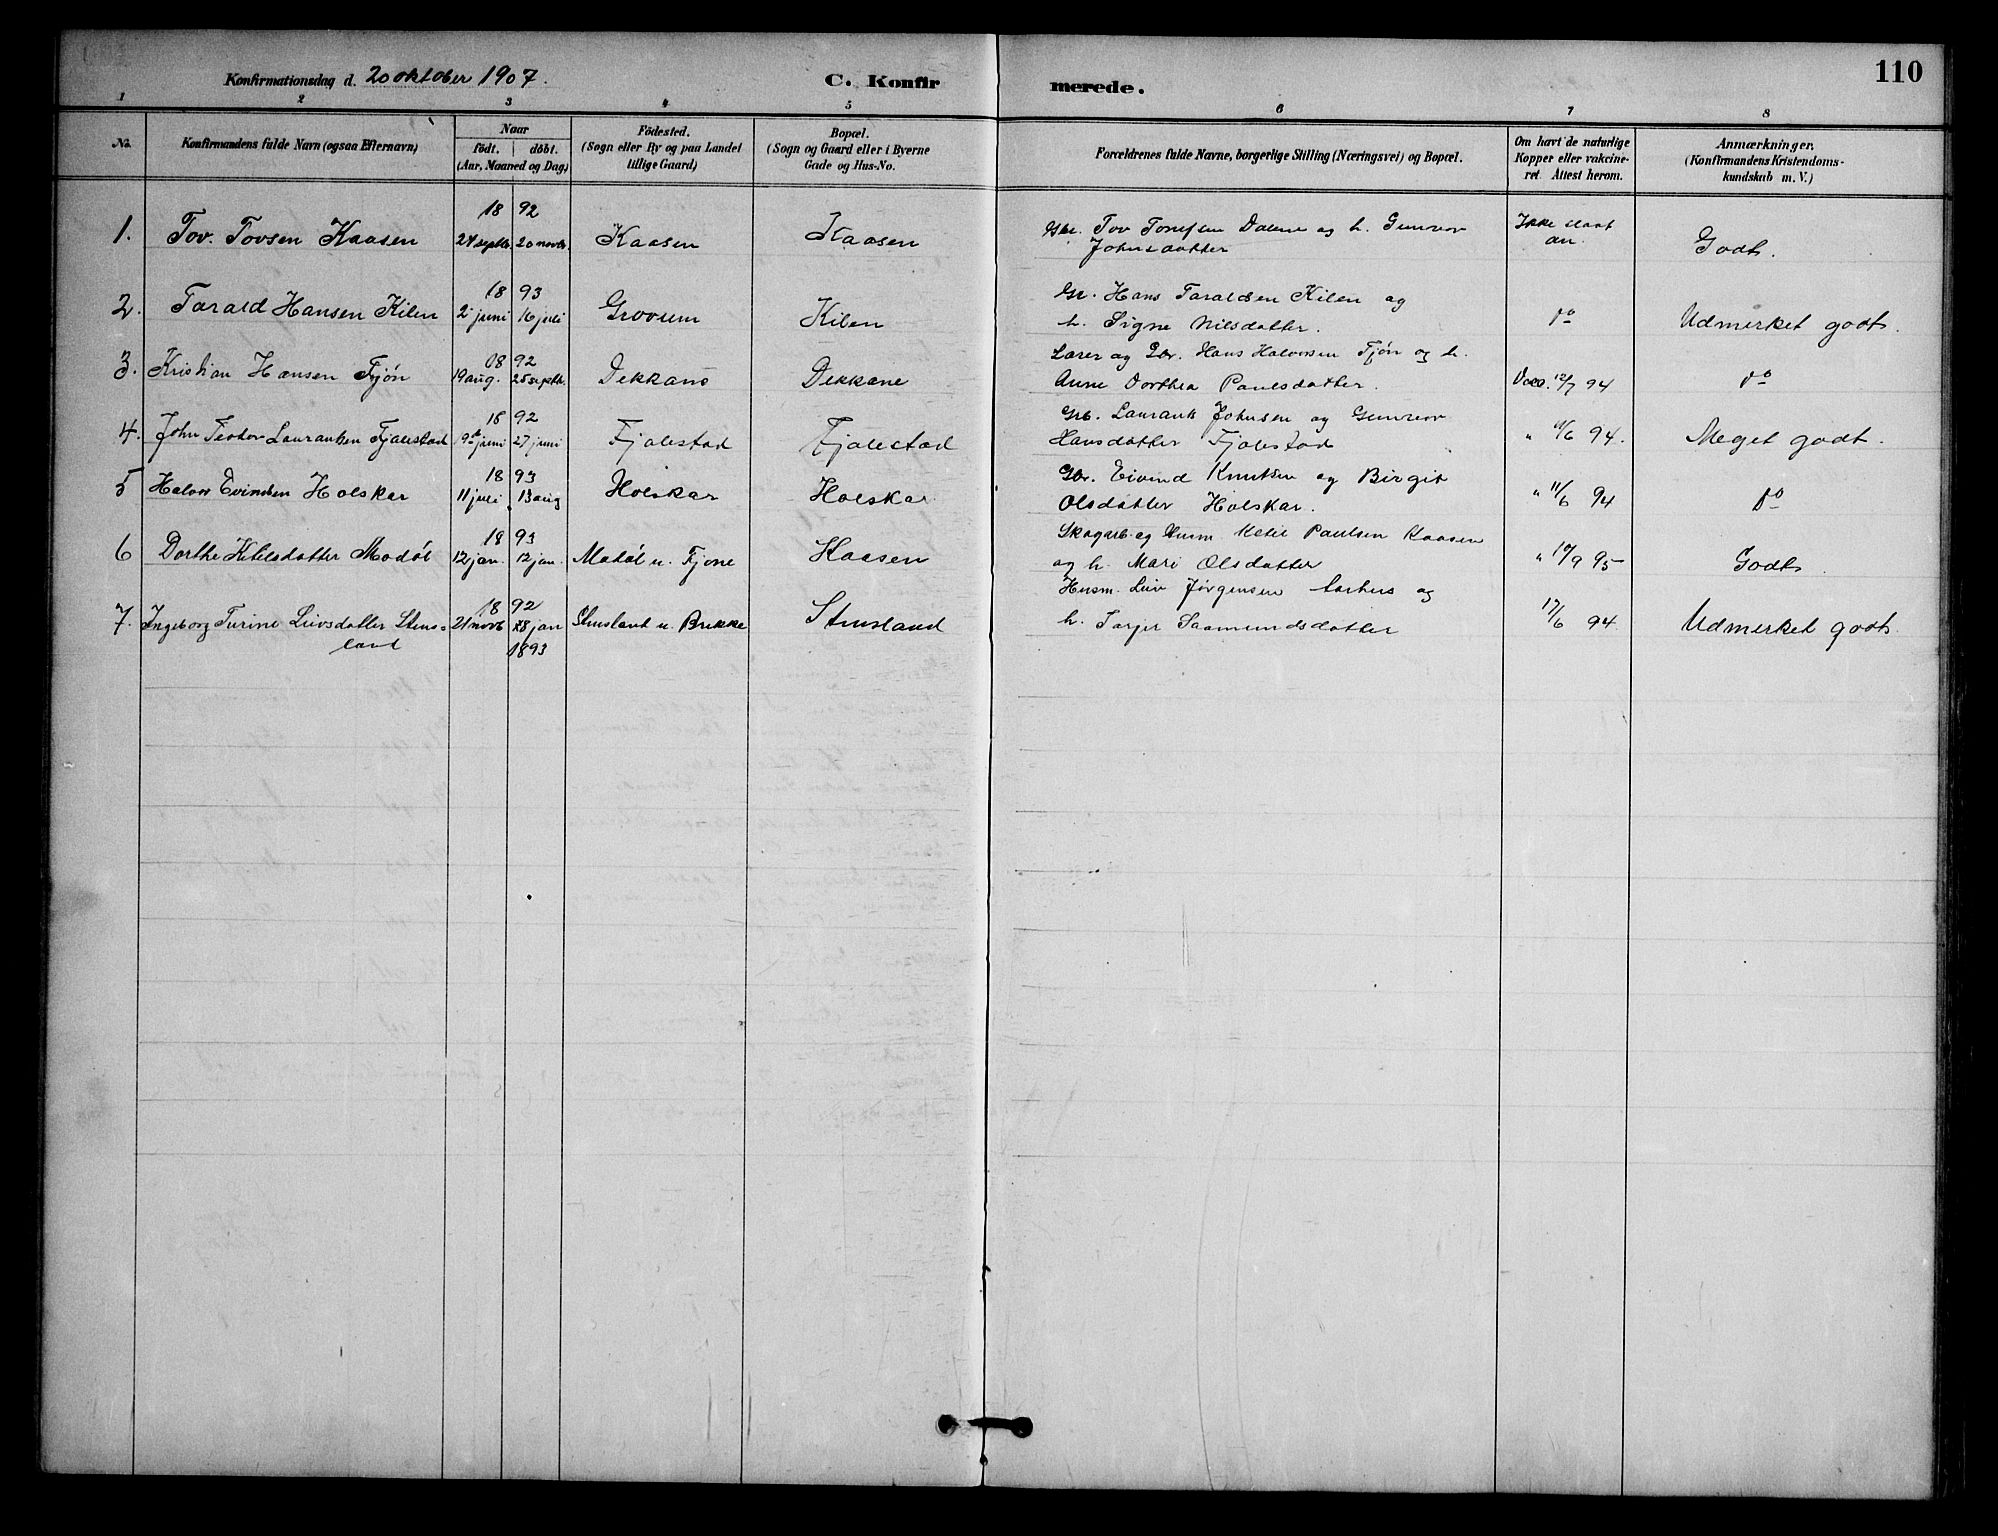 110
Konfirmationsdag d. 20 oktober 1907. C. Konfirmerede.
1 2 3 4 5 6 7 8
No. Konfirmandens fulde Navn (ogsaa Efternavn) Naar födt. döbt. (Aar, Maaned og Dag) Födested. (Sogn eller By og paa Landet tillige Gaard) Bopæl. (Sogn og Gaard eller i Byerne Gade og Hus-No. Forældrenes fulde Navne, borgerlige Stilling (Næringsvei) og Bopæl. Om havt de naturlige Kopper eller vakcineret. Attest herom. Anmærkninger. (Konfirmandens Kristendomskundskab m. V.)
18 92
1. Tov. Tovsen Kaasen 24 septbr. 20 novbr. Kaasen Kaasen Tov Dalene og h. Gunvor Ikke slaat
Johnsdatter an Godt.
18 93 Gr. Hans Taraldsen Kilen og
2. Tarald Hansen Kilen 2 juni 16 juli Grovum Kilen h. Signe Nilsdatter. do Udmerket godt.
18 92 Lærer og Gbr. Hans Halvorsen Fjøn og h.
3. Kristian Hansen Fjøn 19 aug. 25 septbr. Dekkane Dekkane Anne Dorthea Paulsdatter. Vacc. 12/7 94 do
18 92 Grb. Laurants Johnsen og Gunvor
4. John Teodor Laurantsen Fjalestad 19 juni 27 juni Fjalestad Fjalestad Hansdatter Fjalestad " 11/6 94. Meget godt.
18 93 Gbr. Eivind Knutsen og Birgit
5 Halvor Evindsen Holskar 11 juli 13 aug Holskar Holskar Olsdatter Holskar. " 11/6 94 do
18 93 Skogarb. og Husm. Ketil Paulsen Kaasen
6 Dorthe Ketilsdatter Modøl 12 jan. 12 jan. Modøl u. Fjone Kaasen og h. Mari Olsdatter " 17/9 95 Godt.
18 92 Husm. Liiv Jørgensen Aarhus og
7. Ingeborg Turine Liivsdatter Stens= 21 novb 28 jan Stensland u. Brekke Stensland h. Torjer Saamundsdatter 17/6 94 Udmerket godt.
land 1893